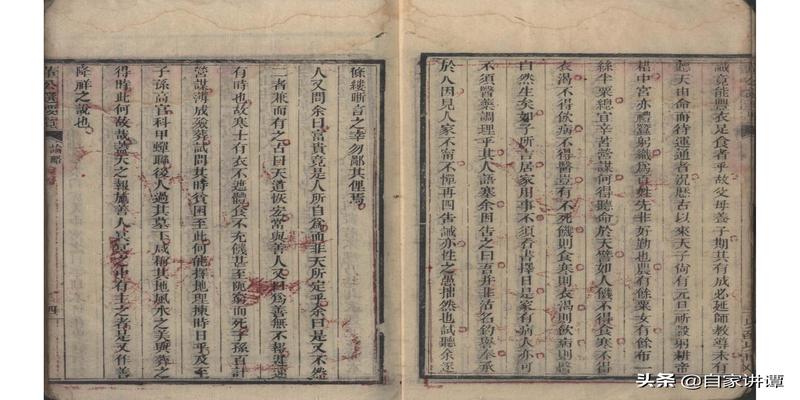 誠竟能豐衣足食者乎故父母善子期其有成必延師教導未有
聽天由命而待運通者況歷古以來天子尙有元旦祈穀躬耕帝
耤中宮亦禮蠶躬織爲百姓先非好勤也農有餘粟女有餘布一
絲生粟總官辛苦營謀何得聽命於天譬如人饑不得食寒不得
衣渴不得飲病不得醫豈有不死饑則食寒則衣渴則飲病則醫
自然生矣如子所言居家用事不須看書擇日是家有病人亦可
不須醫藥調理乎其人語塞余因告之曰吾幷非沽名釣譽奉承
於人因見人家不甯不憚再四告誡亦性之愚拙然也試聽余逐
條縷晰言之幸勿鄙其俚焉
人又問余曰富貴竟是人所自爲而非天所定乎余曰是又不然
二者兼而有之古曰天道恢宏常與善人又曰爲善無不報遲速
有時也故寒士有衣不遮體食不充饑甚至陋窮而死子孫百計
營謀薄成殮葬試問其時貧困至此何能擇地理揀時日乎及至
子孫高官科甲蟬聯後人過其墓下咸稱其地風水之美與葬之
得時此何故哉蓋天之報施善人冥冥之中有主之者是又作善
降祥之說也
論鄙
四
头条 @自家讲谭